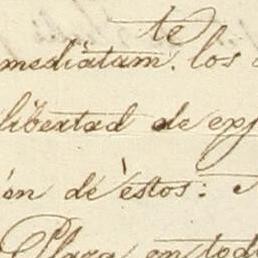 mediatam.te los
libertad de exp
én de éstos:
Plaza, en tod